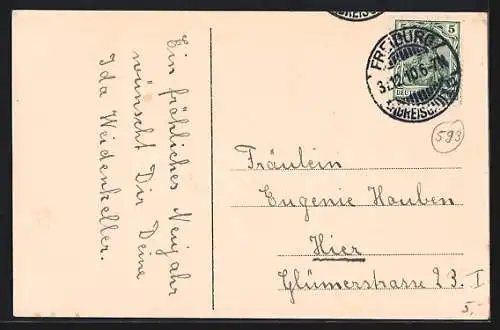 Ein fröhliches Neujahr
wünscht Dir Deine
Ida Weidenkeller.
5 5
FREIBURG
3.12.10.6-7N
(BREISGAU)
593
Fräulein
Eugenie Hauben
Hier
Glümerstrasse 23. I
5,-